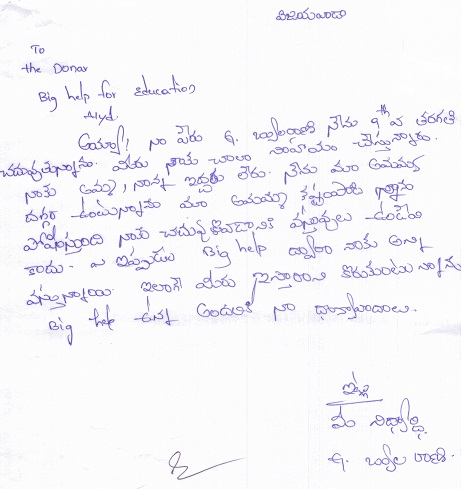 విజయవాడా
To
the Donar
Big help for Education
Hyd.
అయ్యా! నా పేరు G. జ్యోతి నేను 9th వ తరగతి
చదువుతున్నాను. మీరు నాకు చాలా సహాయం చేస్తున్నారు.
నాకు అమ్మ, నాన్న ఇద్దరు లేరు. నేను మా అమమ్మ
దగ్గర ఉంటున్నాను మా అమమ్మ కష్టపడి నన్ను
పోషిస్తుంది నాకు చదువుకోవడానికి వస్తువులు ఉండేవి
కాదు. ఇప్పుడు Big help ద్వారా నాకు అన్ని
వస్తున్నాయి. ఇలాగే మీరు ఇస్తారని కోరుకుంటున్నాను
Big help అన్న అందుకు నా ధన్యవాదాలు.
ఇట్లు
మీ విద్యార్థి
G. రాణి.